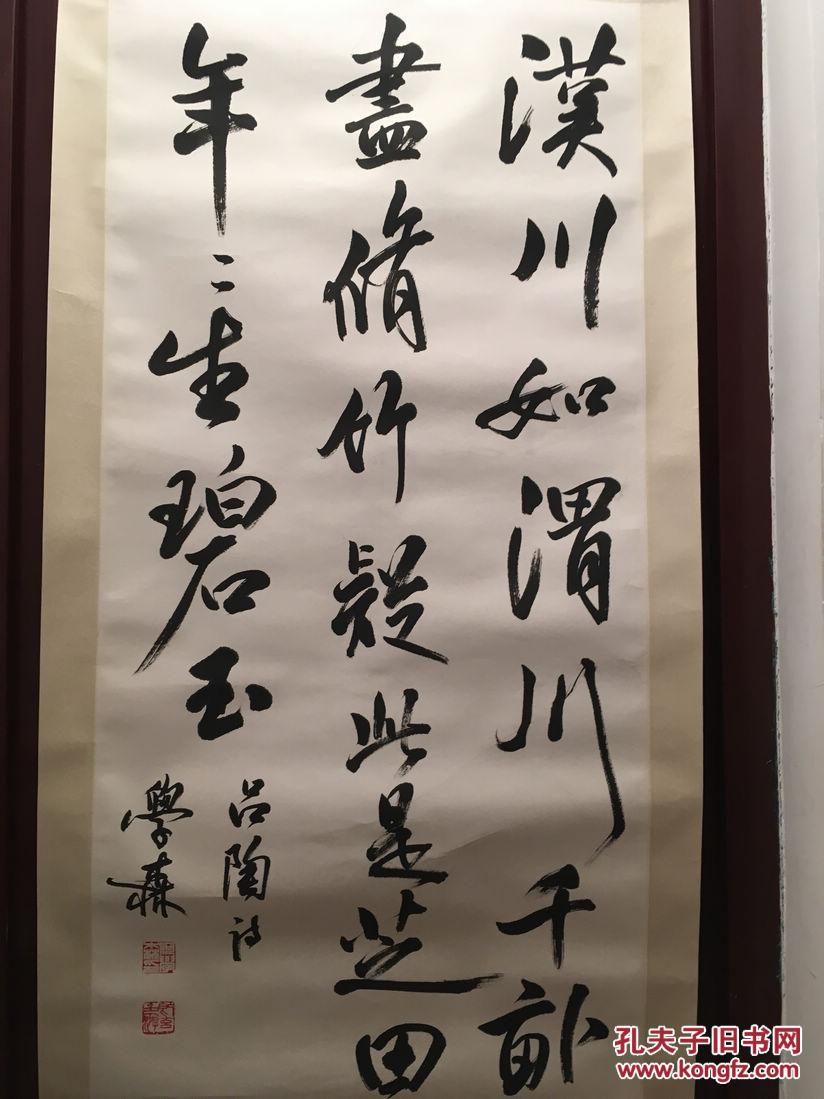 漢川如渭川千畝
盡脩竹疑此是芝田
年二生碧玉
吕陶詩
學森
孔夫子旧书网
www.kongfz.com